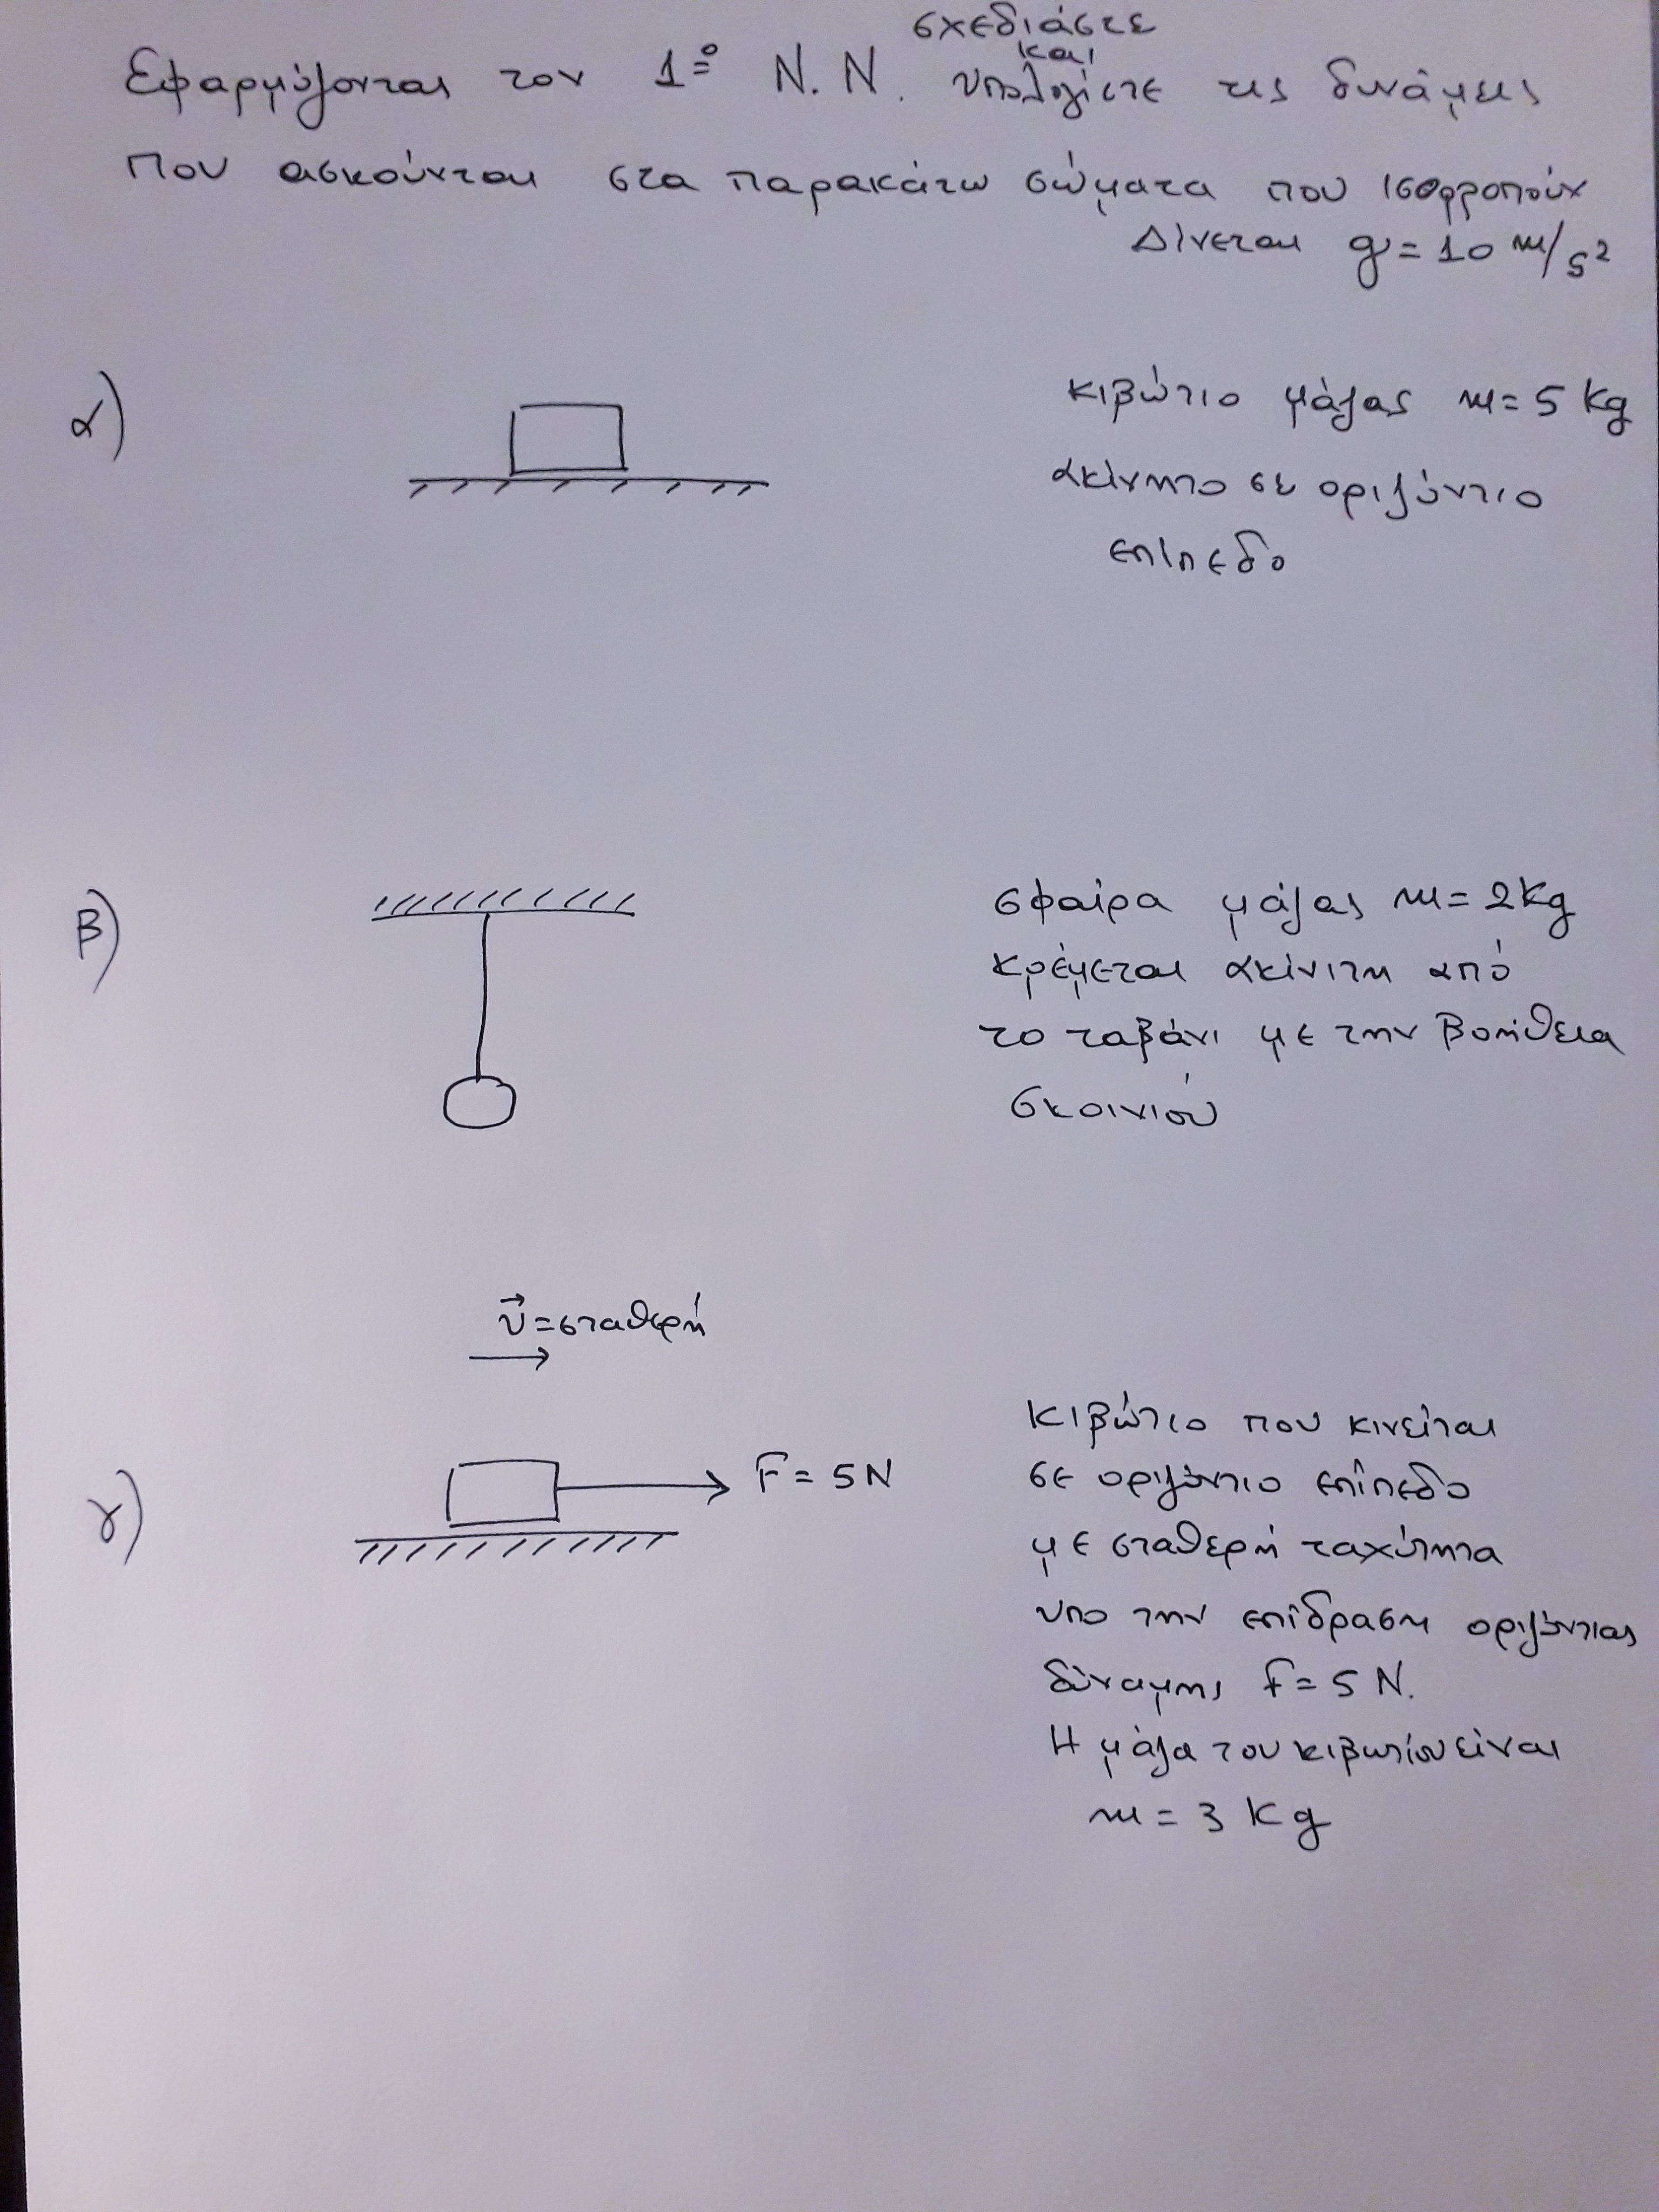 σχεδιάστε
και
Εφαρμόζοντας τον 1ο Ν.Ν. υπολογίστε τις δυνάμεις
που ασκούνται στα παρακάτω σώματα που ισορροπούν
Δίνεται g = 10 m/s²
α)
κιβώτιο μάζας m = 5 kg
ακίνητο σε οριζόντιο
επίπεδο
β)
σφαίρα μάζας m = 2 kg
κρέμεται ακίνιτη από
το ταβάνι με την βοήθεια
σκοινιού
υ⃗ = σταθερή
γ)
F = 5 N
κιβώτιο που κινείται
σε οριζόντιο επίπεδο
με σταθερή ταχύτητα
υπο την επίδραση οριζόντιας
δύναμης F = 5 N.
Η μάζα του κιβωτίου είναι
m = 3 kg